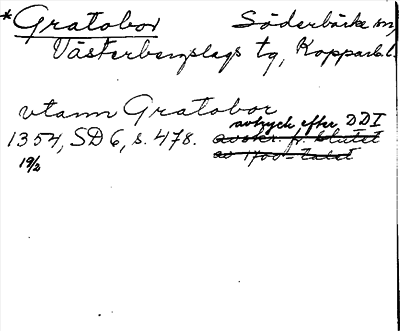 *Gratobor Söderbärke sn,
Västerbergslags tg, Kopparb. l.
utann Gratobor
avtryck efter DD I
1354, SD 6, s. 478. avskr. fr. slutet
19/2 av 1700-talet